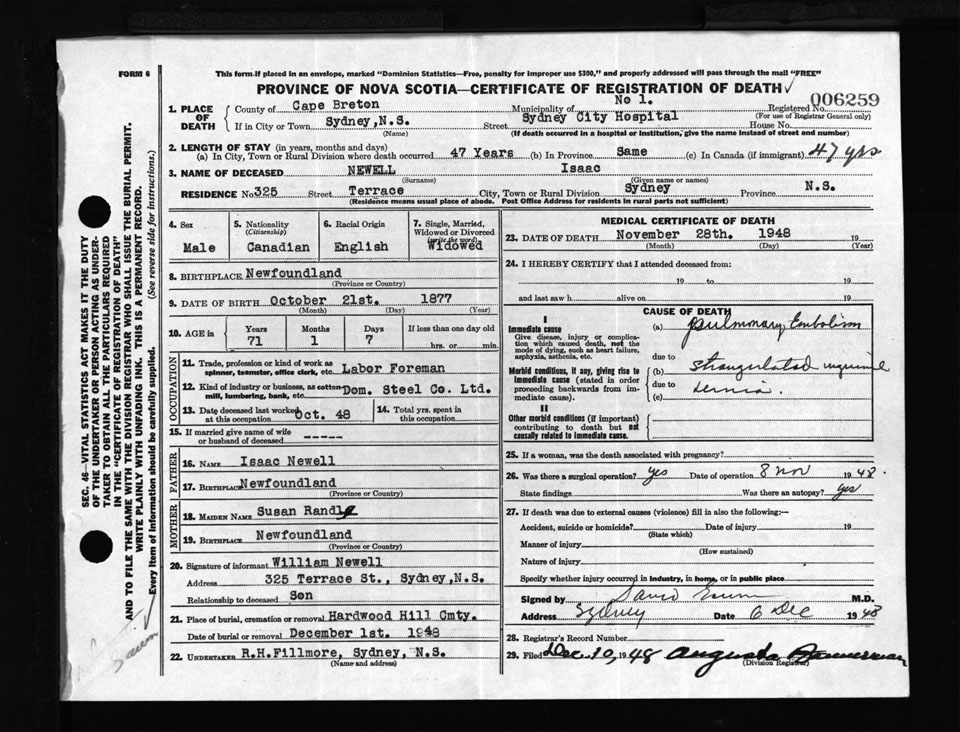 FORM 6
This form if placed in an envelope, marked "Dominion Statistics—Free, penalty for improper use $300," and properly addressed will pass through the mail "FREE"
PROVINCE OF NOVA SCOTIA—CERTIFICATE OF REGISTRATION OF DEATH
006259
1. PLACE OF DEATH
County of Cape Breton Municipality of No 1. Registered No.
(For use of Registrar General only)
If in City or Town Sydney, N.S. Street Sydney City Hospital House No.
(Name) (If death occurred in a hospital or institution, give the name instead of street and number)
2. LENGTH OF STAY (in years, months and days)
(a) In City, Town or Rural Division where death occurred 47 Years (b) In Province Same (c) In Canada (if immigrant) 47 yrs
3. NAME OF DECEASED NEWELL Isaac
(Surname) (Given name or names)
RESIDENCE No 325 Street Terrace City, Town or Rural Division Sydney Province N.S.
(Residence means usual place of abode. Post Office Address for residents in rural parts not sufficient)
4. Sex Male
5. Nationality (Citizenship) Canadian
6. Racial Origin English
7. Single, Married, Widowed or Divorced (write the word) Widowed
8. BIRTHPLACE Newfoundland
(Province or Country)
9. DATE OF BIRTH October 21st. 1877
(Month) (Day) (Year)
10. AGE in Years Months Days If less than one day old
71 1 7 hrs. or min.
OCCUPATION
11. Trade, profession or kind of work as spinner, teamster, office clerk, etc. Labor Foreman
12. Kind of industry or business, as cotton mill, lumbering, bank, etc. Dom. Steel Co. Ltd.
13. Date deceased last worked at this occupation Oct. 48
14. Total yrs. spent in this occupation
15. If married give name of wife or husband of deceased -----
FATHER
16. NAME Isaac Newell
17. BIRTHPLACE Newfoundland
(Province or Country)
MOTHER
18. MAIDEN NAME Susan Randle
19. BIRTHPLACE Newfoundland
(Province or Country)
20. Signature of informant William Newell
Address 325 Terrace St., Sydney, N.S.
Relationship to deceased Son
21. Place of burial, cremation or removal Hardwood Hill Cmty.
Date of burial or removal December 1st. 1948
22. UNDERTAKER R.H.Fillmore, Sydney, N.S.
(Name and address)
MEDICAL CERTIFICATE OF DEATH
23. DATE OF DEATH November 28th. 1948 19
(Month) (Day) (Year)
24. I HEREBY CERTIFY that I attended deceased from:
19 to 19
and last saw h alive on 19
CAUSE OF DEATH
I
Immediate cause
Give disease, injury or complication which caused death, not the mode of dying, such as heart failure, asphyxia, asthenia, etc.
(a) Pulmonary Embolism
due to
Morbid conditions, if any, giving rise to immediate cause (stated in order proceeding backwards from immediate cause).
(b) strangulated inguinal
due to hernia.
(c)
II
Other morbid conditions (if important) contributing to death but not causally related to immediate cause.
25. If a woman, was the death associated with pregnancy?
26. Was there a surgical operation? yes Date of operation 8 Nov 1948.
State findings Was there an autopsy? yes
27. If death was due to external causes (violence) fill in also the following:—
Accident, suicide or homicide? Date of injury 19
(State which)
Manner of injury
(How sustained)
Nature of injury
Specify whether injury occurred in industry, in home, or in public place
Signed by David M.D.
Address Sydney Date 6 Dec 1948
28. Registrar's Record Number
29. Filed Dec. 10, 1948 Augusta Bannerman
(Division Registrar)
SEC. 46—VITAL STATISTICS ACT MAKES IT THE DUTY
OF THE UNDERTAKER OR PERSON ACTING AS UNDER-
TAKER TO OBTAIN ALL THE PARTICULARS REQUIRED
IN THE "CERTIFICATE OF REGISTRATION OF DEATH"
AND TO FILE THE SAME WITH THE DIVISION REGISTRAR WHO SHALL ISSUE THE BURIAL PERMIT.
WRITE PLAINLY WITH UNFADING INK. THIS IS A PERMANENT RECORD.
Every item of information should be carefully supplied. (See reverse side for instructions.)